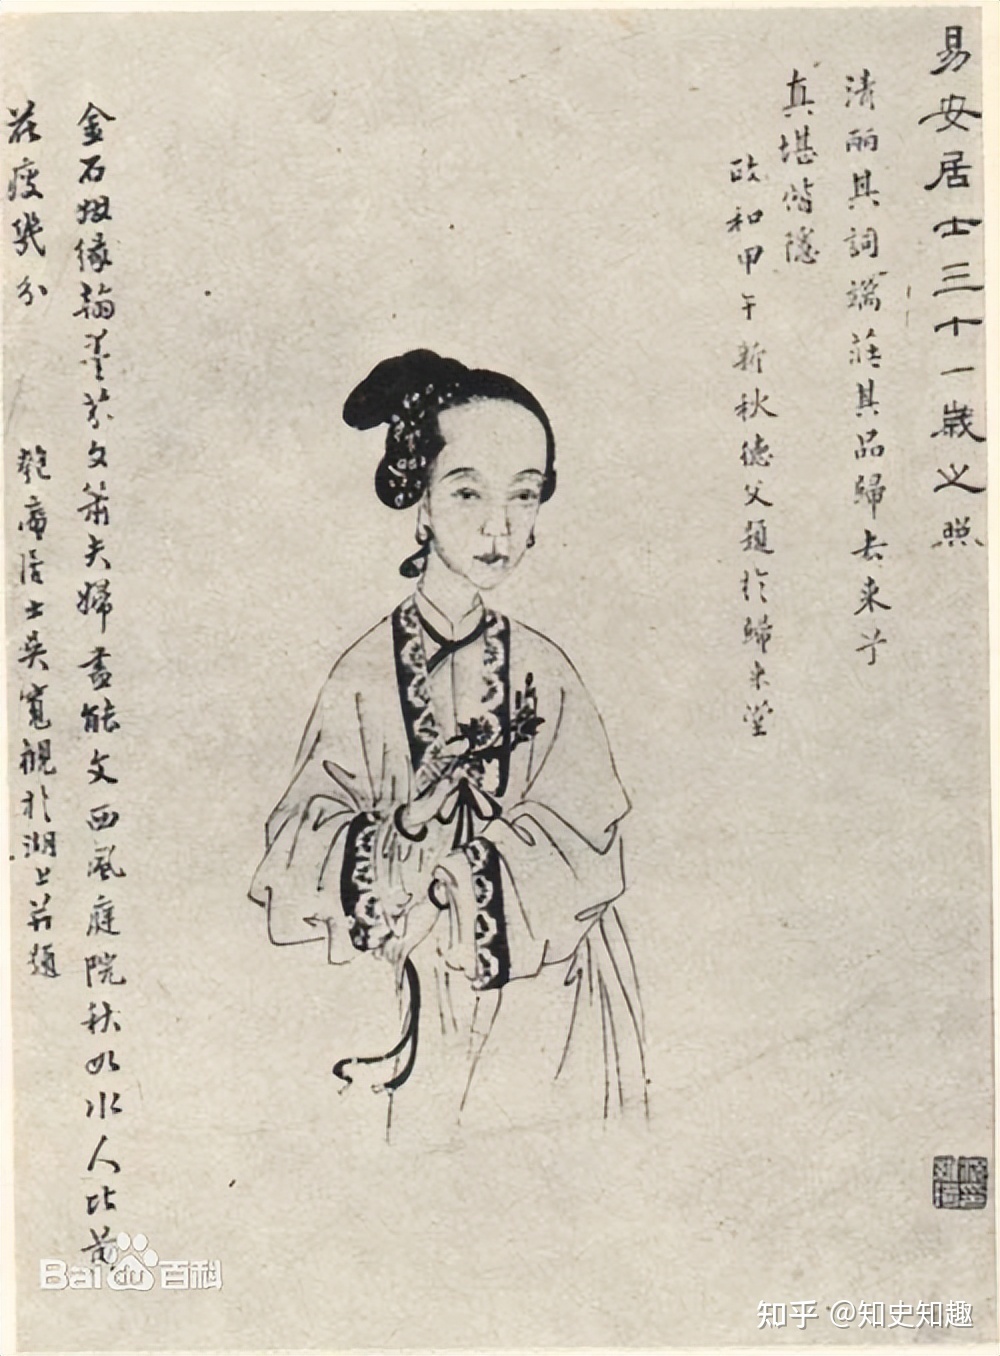 易安居士三十一歲之照
清丽其詞端莊其品歸去来兮
真堪偕隱
政和甲午新秋德父題於歸来堂
金石姻缘翰墨芬文簫夫婦盡能文西風庭院秋如水人比黄
花瘦幾分
匏庵居士吴寬觀於湖上并題
Bai百科
知乎 @知史知趣